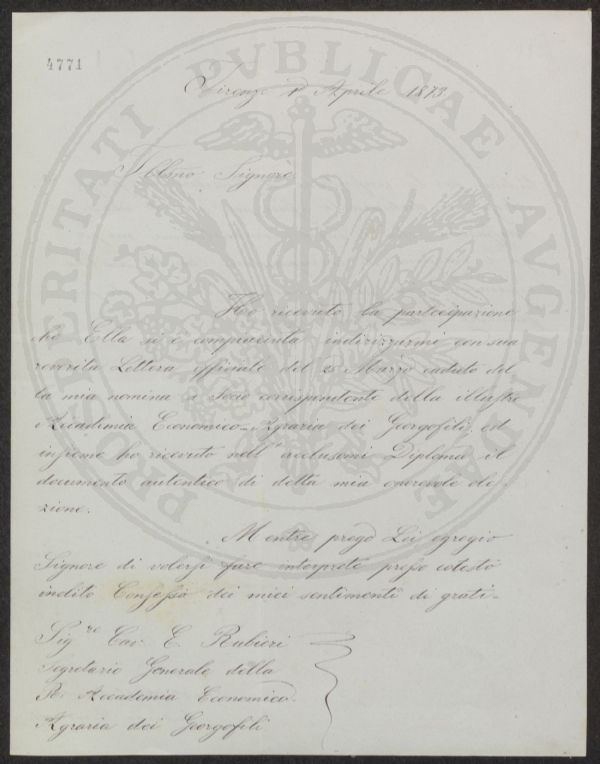 4771
Firenze 1° Aprile 1873.
Illmo Signore
Ho ricevuto la partecipazione
che Ella si è compiaciuta indirizzarmi con sua
riverita Lettera officiale del 25 Marzo caduto del
la mia nomina a Socio corrispondente della illustre
Accademia Economico-Agraria dei Georgofili, ed
insieme ho ricevuto nell'acclusomi Diploma il
documento autentico di detta mia onorevole ele-
zione.
Mentre prego Lei egregio
Signore di volersi fare interprete presso cotesto
inclito Consesso dei miei sentimenti di grati-
Sig.re Cav. E. Rubieri
Segretario Generale della
R. Accademia Economico
Agraria dei Georgofili
PROSPERITATI PVBLICAE AVGENDAE